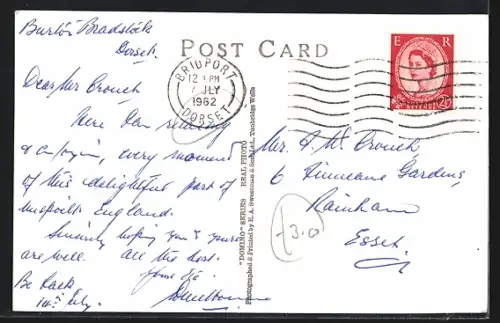 Burton Bradstock
Dorset.
POST CARD
BRIDPORT
12 PM
JLY
1962
DORSET
E R
Dear Mr Crouch
Here I am
& enjoying every moment
of this delightful part of
unspoilt England.
Sincerely hoping you & yours
are well. All the best.
Yours
14th July.
Mr. Crouch
6 Gardens,
Rainham
Essex.
"DOMINO" SERIES REAL PHOTO
Photographed & Printed by E. A. Sweetman & Son, Ltd., Tunbridge Wells